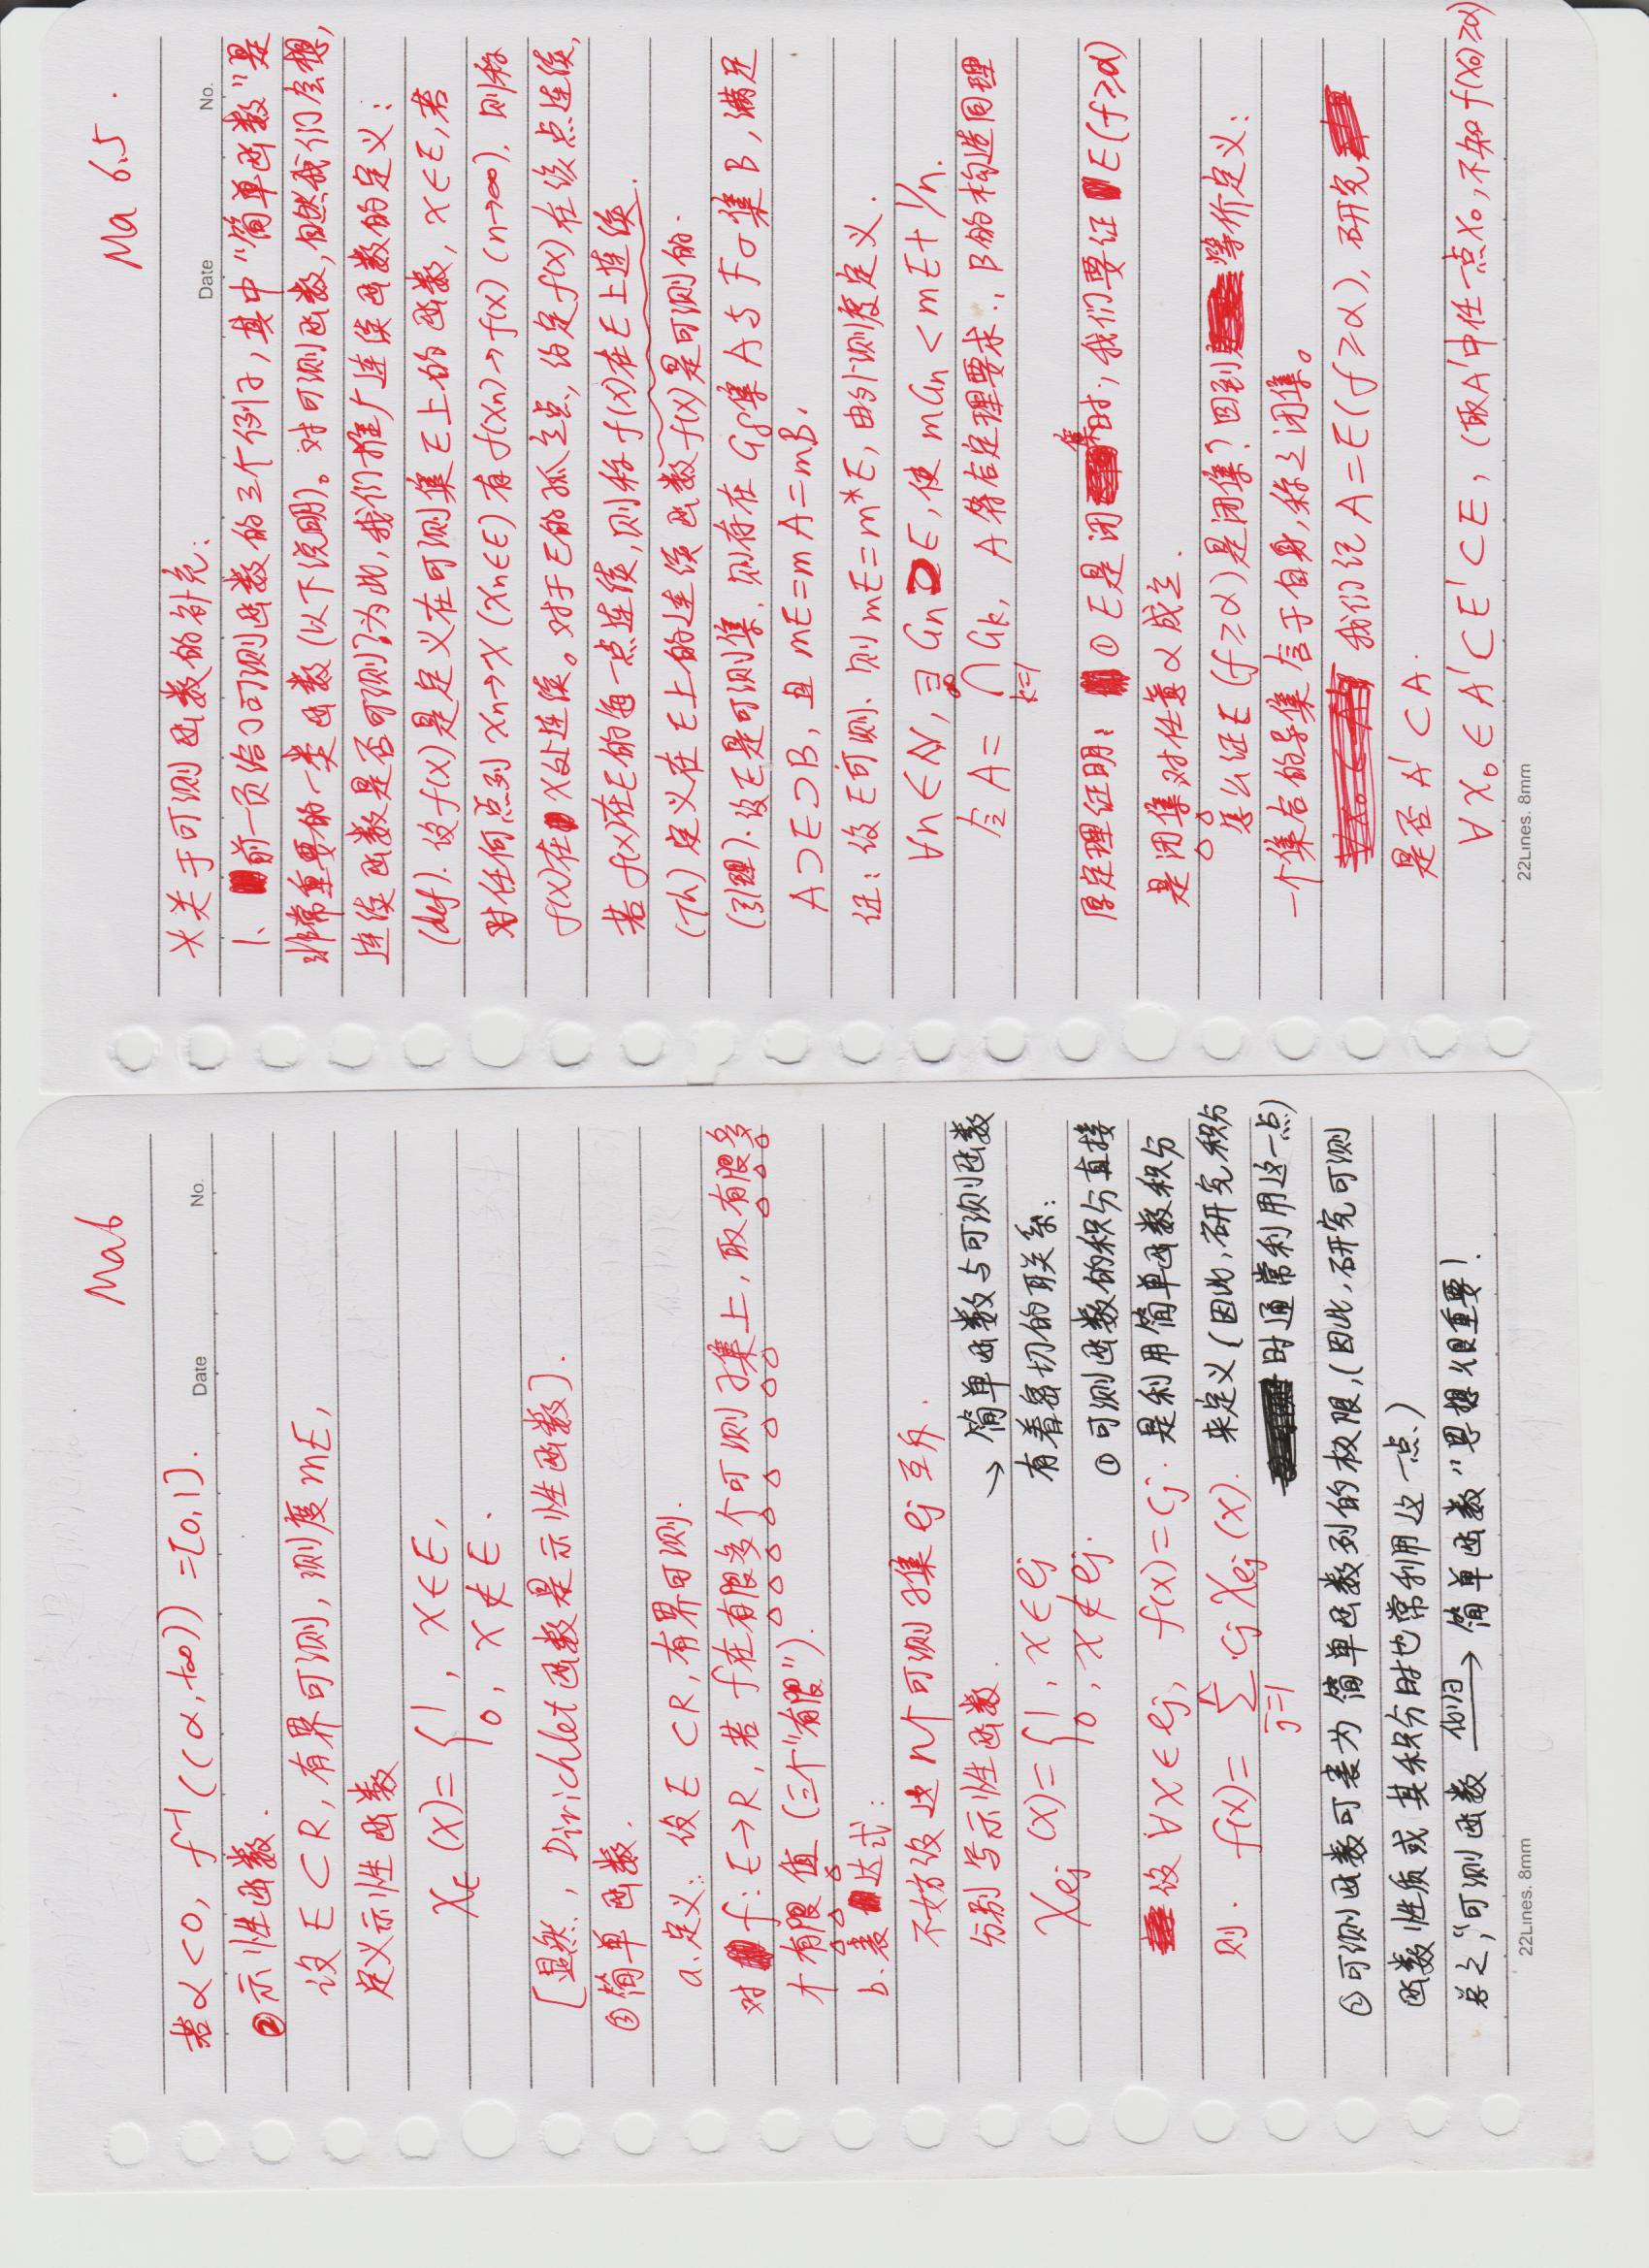 Ma6
若α<0, f⁻¹((α,+∞))=[0,1].
Date No.
②示性函数.
设 E⊂R, 有界可测, 测度 mE,
定义示性函数
χ_E(x)={1, x∈E,
0, x∉E.
[显然, Dirichlet函数是示性函数].
③简单函数.
a.定义: 设 E⊂R, 有界可测.
对 f:E→R, 若 f在有限多个可测子集上, 取有限多
个有限值(三个"有限").
b.表达式:
不妨设这n个可测子集 ej 互斥.
分别写示性函数.
χ_ej(x)={1, x∈ej
0, x∉ej.
设 ∀x∈ej, f(x)=cj.
则. f(x)=∑_{j=1}^{n} cj χ_ej(x).
→ 简单函数与可测函数
有着密切的联系:
①可测函数的积分直接
是利用简单函数积分
来定义(因此,研究积分
时通常利用这一点)
②可测函数可表为简单函数列的极限,(因此,研究可测
函数性质或其积分时也常利用这一点)
总之,"可测函数 —化归→ 简单函数"思想很重要!
22Lines. 8mm
Ma 6.5.
*关于可测函数的补充:
Date No.
1、前一页给了可测函数的三个例子,其中"简单函数"是
非常重要的一类函数(以下说明)。对可测函数,自然我们会想,
连续函数是否可测?为此,我们推广连续函数的定义:
(def). 设f(x)是定义在可测集E上的函数, x∈E, 若
对任何点列 xn→x (xn∈E) 有 f(xn)→f(x) (n→∞). 则称
f(x)在x处连续。对于E的孤立点,约定f(x)在该点连续,
若f(x)在E的每一点连续,则称f(x)在E上连续.
(Th) 定义在E上的连续函数f(x)是可测的.
(引理).设E是可测集. 则存在 Gδ集A与Fσ集B, 满足
A⊃E⊃B, 且 mE=mA=mB.
证: 设E可测. 则 mE=m*E, 由外测度定义.
∀n∈N, ∃Gn⊃E, 使 mGn<mE+1/n.
令 A=∩_{k=1}^{∞}Gk, A符合定理要求., B的构造同理
原定理证明: ①E是闭集时, 我们要证 E(f≥α)
是闭集对任意α成立.
怎么证E(f≥α)是闭集?回到等价定义:
一个集合的导集含于自身,称之闭集。
我们记 A=E(f≥α), 研究
是否 A'⊂A.
∀x₀∈A'⊂E'⊂E, (取A'中任一点x₀,不知f(x₀)≥α)
22Lines. 8mm